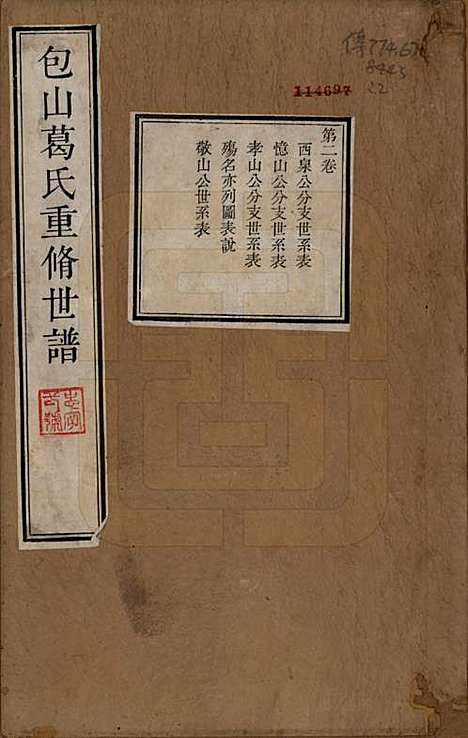 包山葛氏重脩世譜
第二卷
西泉公分支世系表
憶山公分支世系表
孝山公分支世系表
殤名亦列圖表說
敬山公世系表
傳774.67
8443
C2
114697